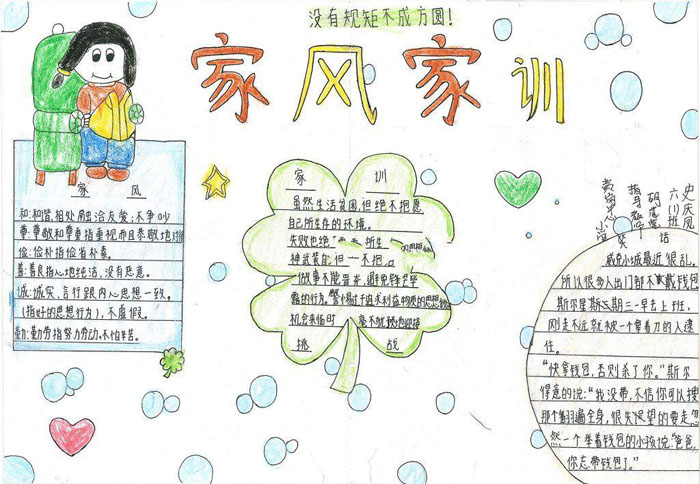 没有规矩不成方圆!
家风家训
家 风
和:和谐,相处融洽友爱,不争吵
尊:尊敬和尊重指重视而且恭敬地对待
俭:俭朴指俭省朴素。
善:善良指心地纯洁,没有恶意。
诚:诚实,言行跟内心思想一致。
(指好的思想行为),不虚假。
勤:勤劳指努力劳动,不怕辛苦。
家 训
虽然生活贫困,但绝不抱怨
自己所生存的环境。
失败也绝 所生
神武装 但一不把
做事不能 避免
露的行为。 时追求利益 的思想
机会来临时 毫不犹豫地迎接
挑 战
史庆凤
六(1)班
指导教师
黄岗中心
笑 话
威克小城最近很乱,
所以很多人出门都不戴钱包
斯尔星期三一早去上班,
刚走不远就被一个拿着刀的人逮
住。
“快拿钱包,否则杀了你。”斯尔
得意的说:“我没带,不信你可以搜
那个翻遍全身,很失望的要走,忽
然一个举着钱包的小孩说:“爸爸,
你忘带钱包了。”